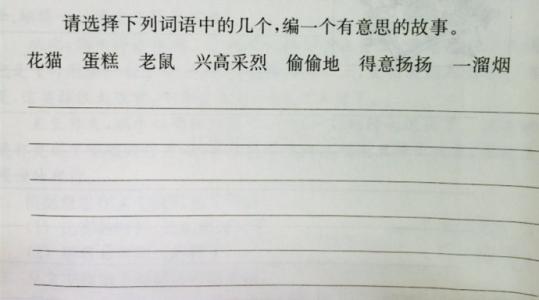 请选择下列词语中的几个，编一个有意思的故事。
花猫 蛋糕 老鼠 兴高采烈 偷偷地 得意扬扬 一溜烟